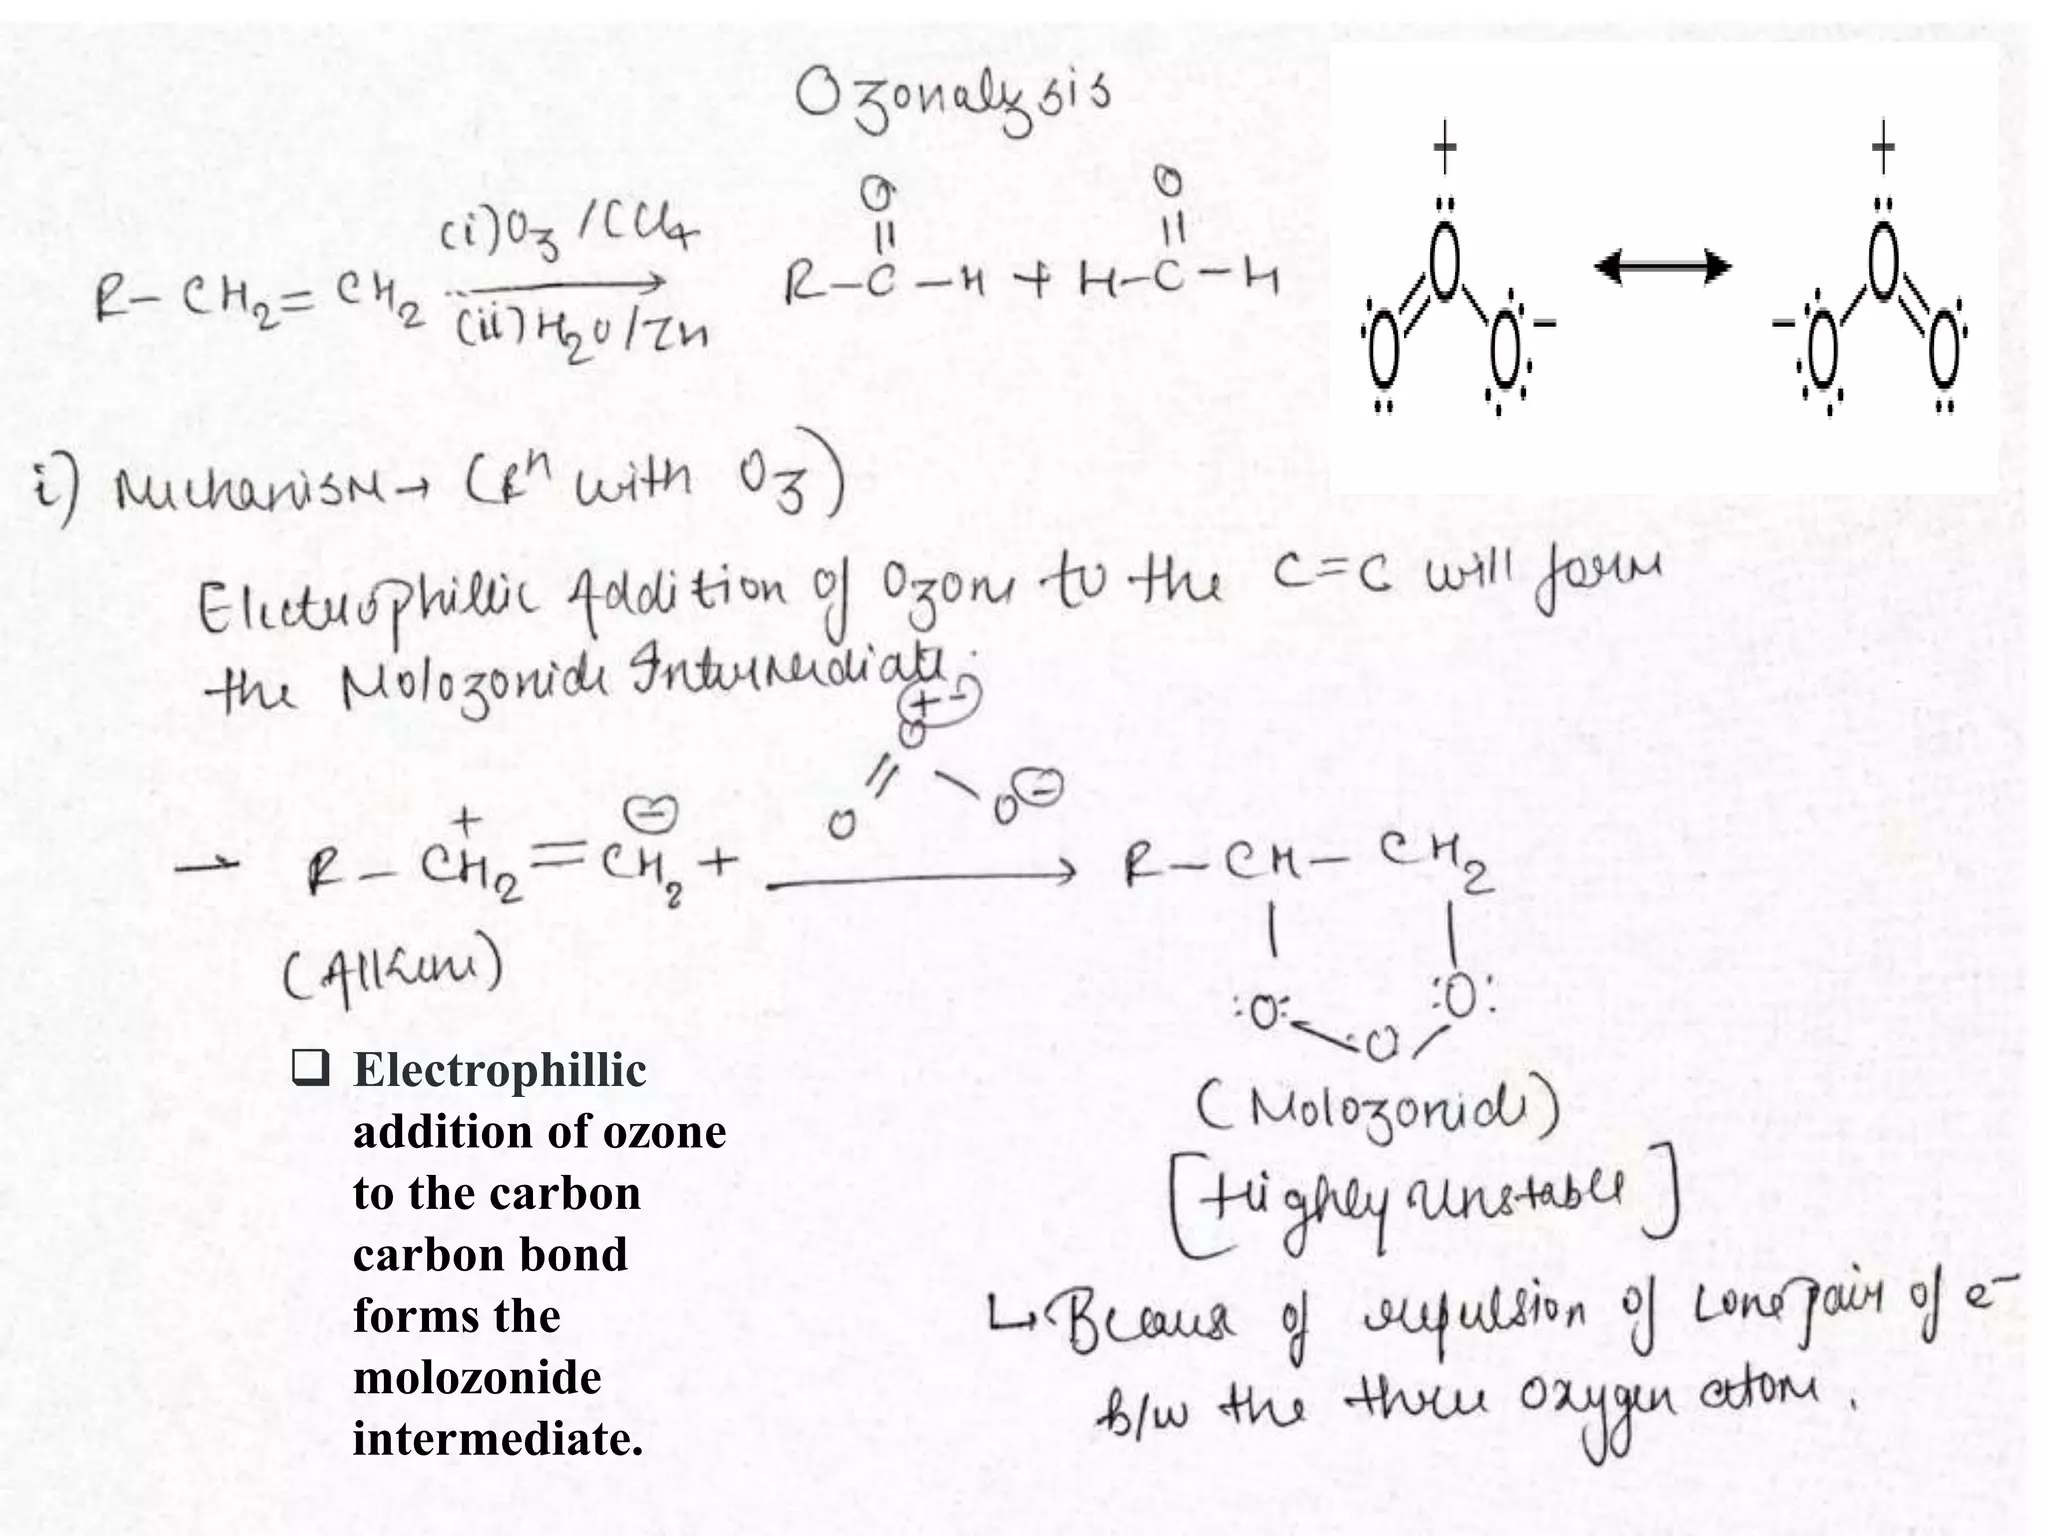 Ozonalysis
(i) O3 /CCl4
R – CH2 = CH2 → R–C–H + H–C–H
O O
(ii) H2O/Zn
+ +
O O
O O – – O O
i) Mechanism → (Rn with O3)
Electrophillic Addition of Ozone to the C=C will form
the Molozonide Intermediate.
+ -
O
O O –
+ –
→ R – CH2 = CH2 + → R – CH – CH2
(Alkene)
:O: :O:
:O
(Molozonide)
[Highly Unstable]
↳ Because of repulsion of Lone pair of e–
b/w the three oxygen atom.
❑ Electrophillic
addition of ozone
to the carbon
carbon bond
forms the
molozonide
intermediate.